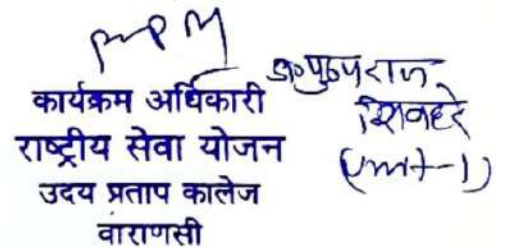 कार्यक्रम अधिकारी
राष्ट्रीय सेवा योजन
उदय प्रताप कालेज
वाराणसी
शिवहरे
(Unit-1)